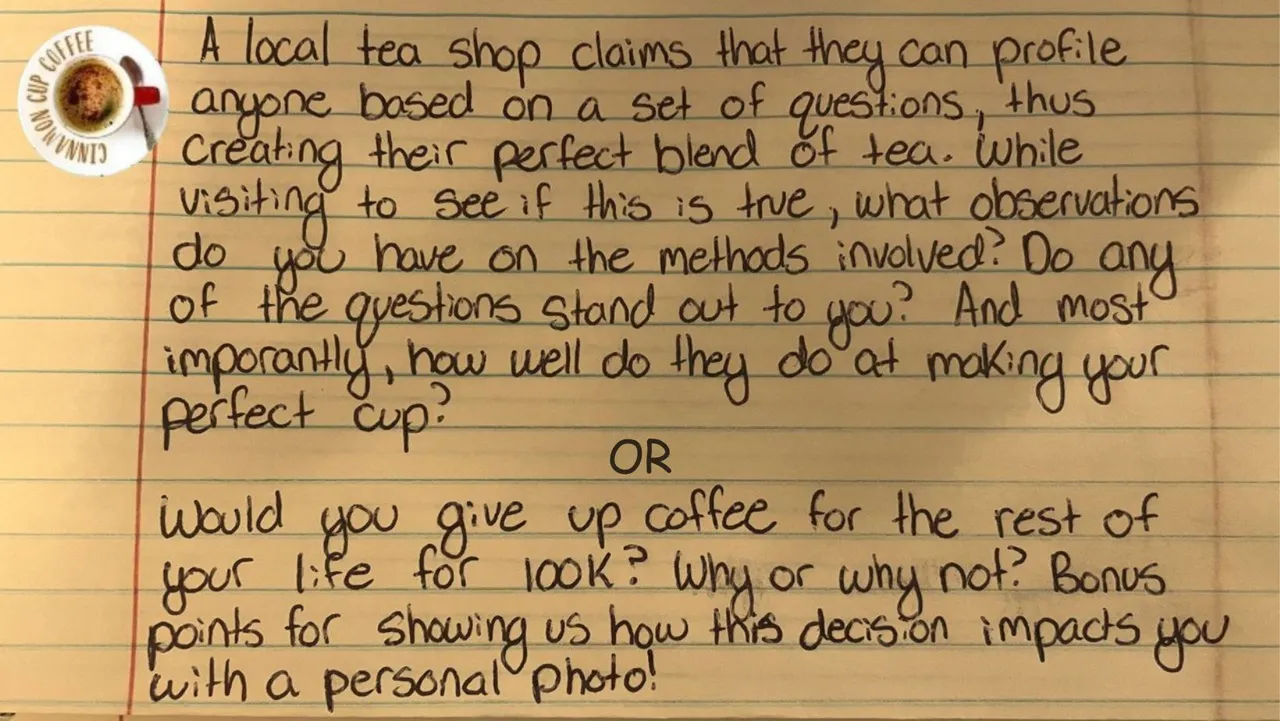 CINNAMON CUP COFFEE
A local tea shop claims that they can profile
anyone based on a set of questions, thus
creating their perfect blend of tea. While
visiting to see if this is true, what observations
do you have on the methods involved? Do any
of the questions stand out to you? And most
imporantly, how well do they do at making your
perfect cup?
OR
Would you give up coffee for the rest of
your life for 100K? Why or why not? Bonus
points for showing us how this decision impacts you
with a personal photo!